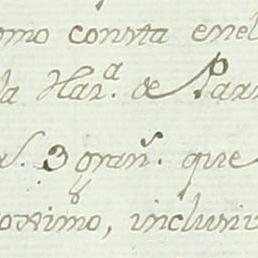 como consta enel
la Har.ª de Parr
s. 3 gran.s que
oximo, inclusiv